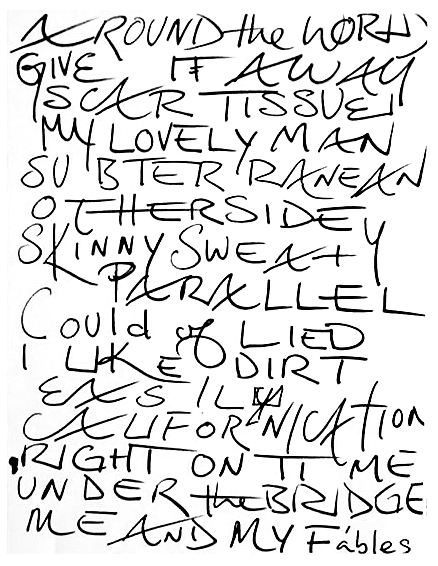 AROUND the WORLD
GIVE IT AWAY
SCAR TISSUE
MY LOVELY MAN
SUBTERRANEAN
OTHERSIDE
SKINNY SWEATY
PARALLEL
Could of LIED
I LIKE DIRT
EASILY
CALIFORNICATION
RIGHT ON TIME
UNDER the BRIDGE
ME AND MY Fábles